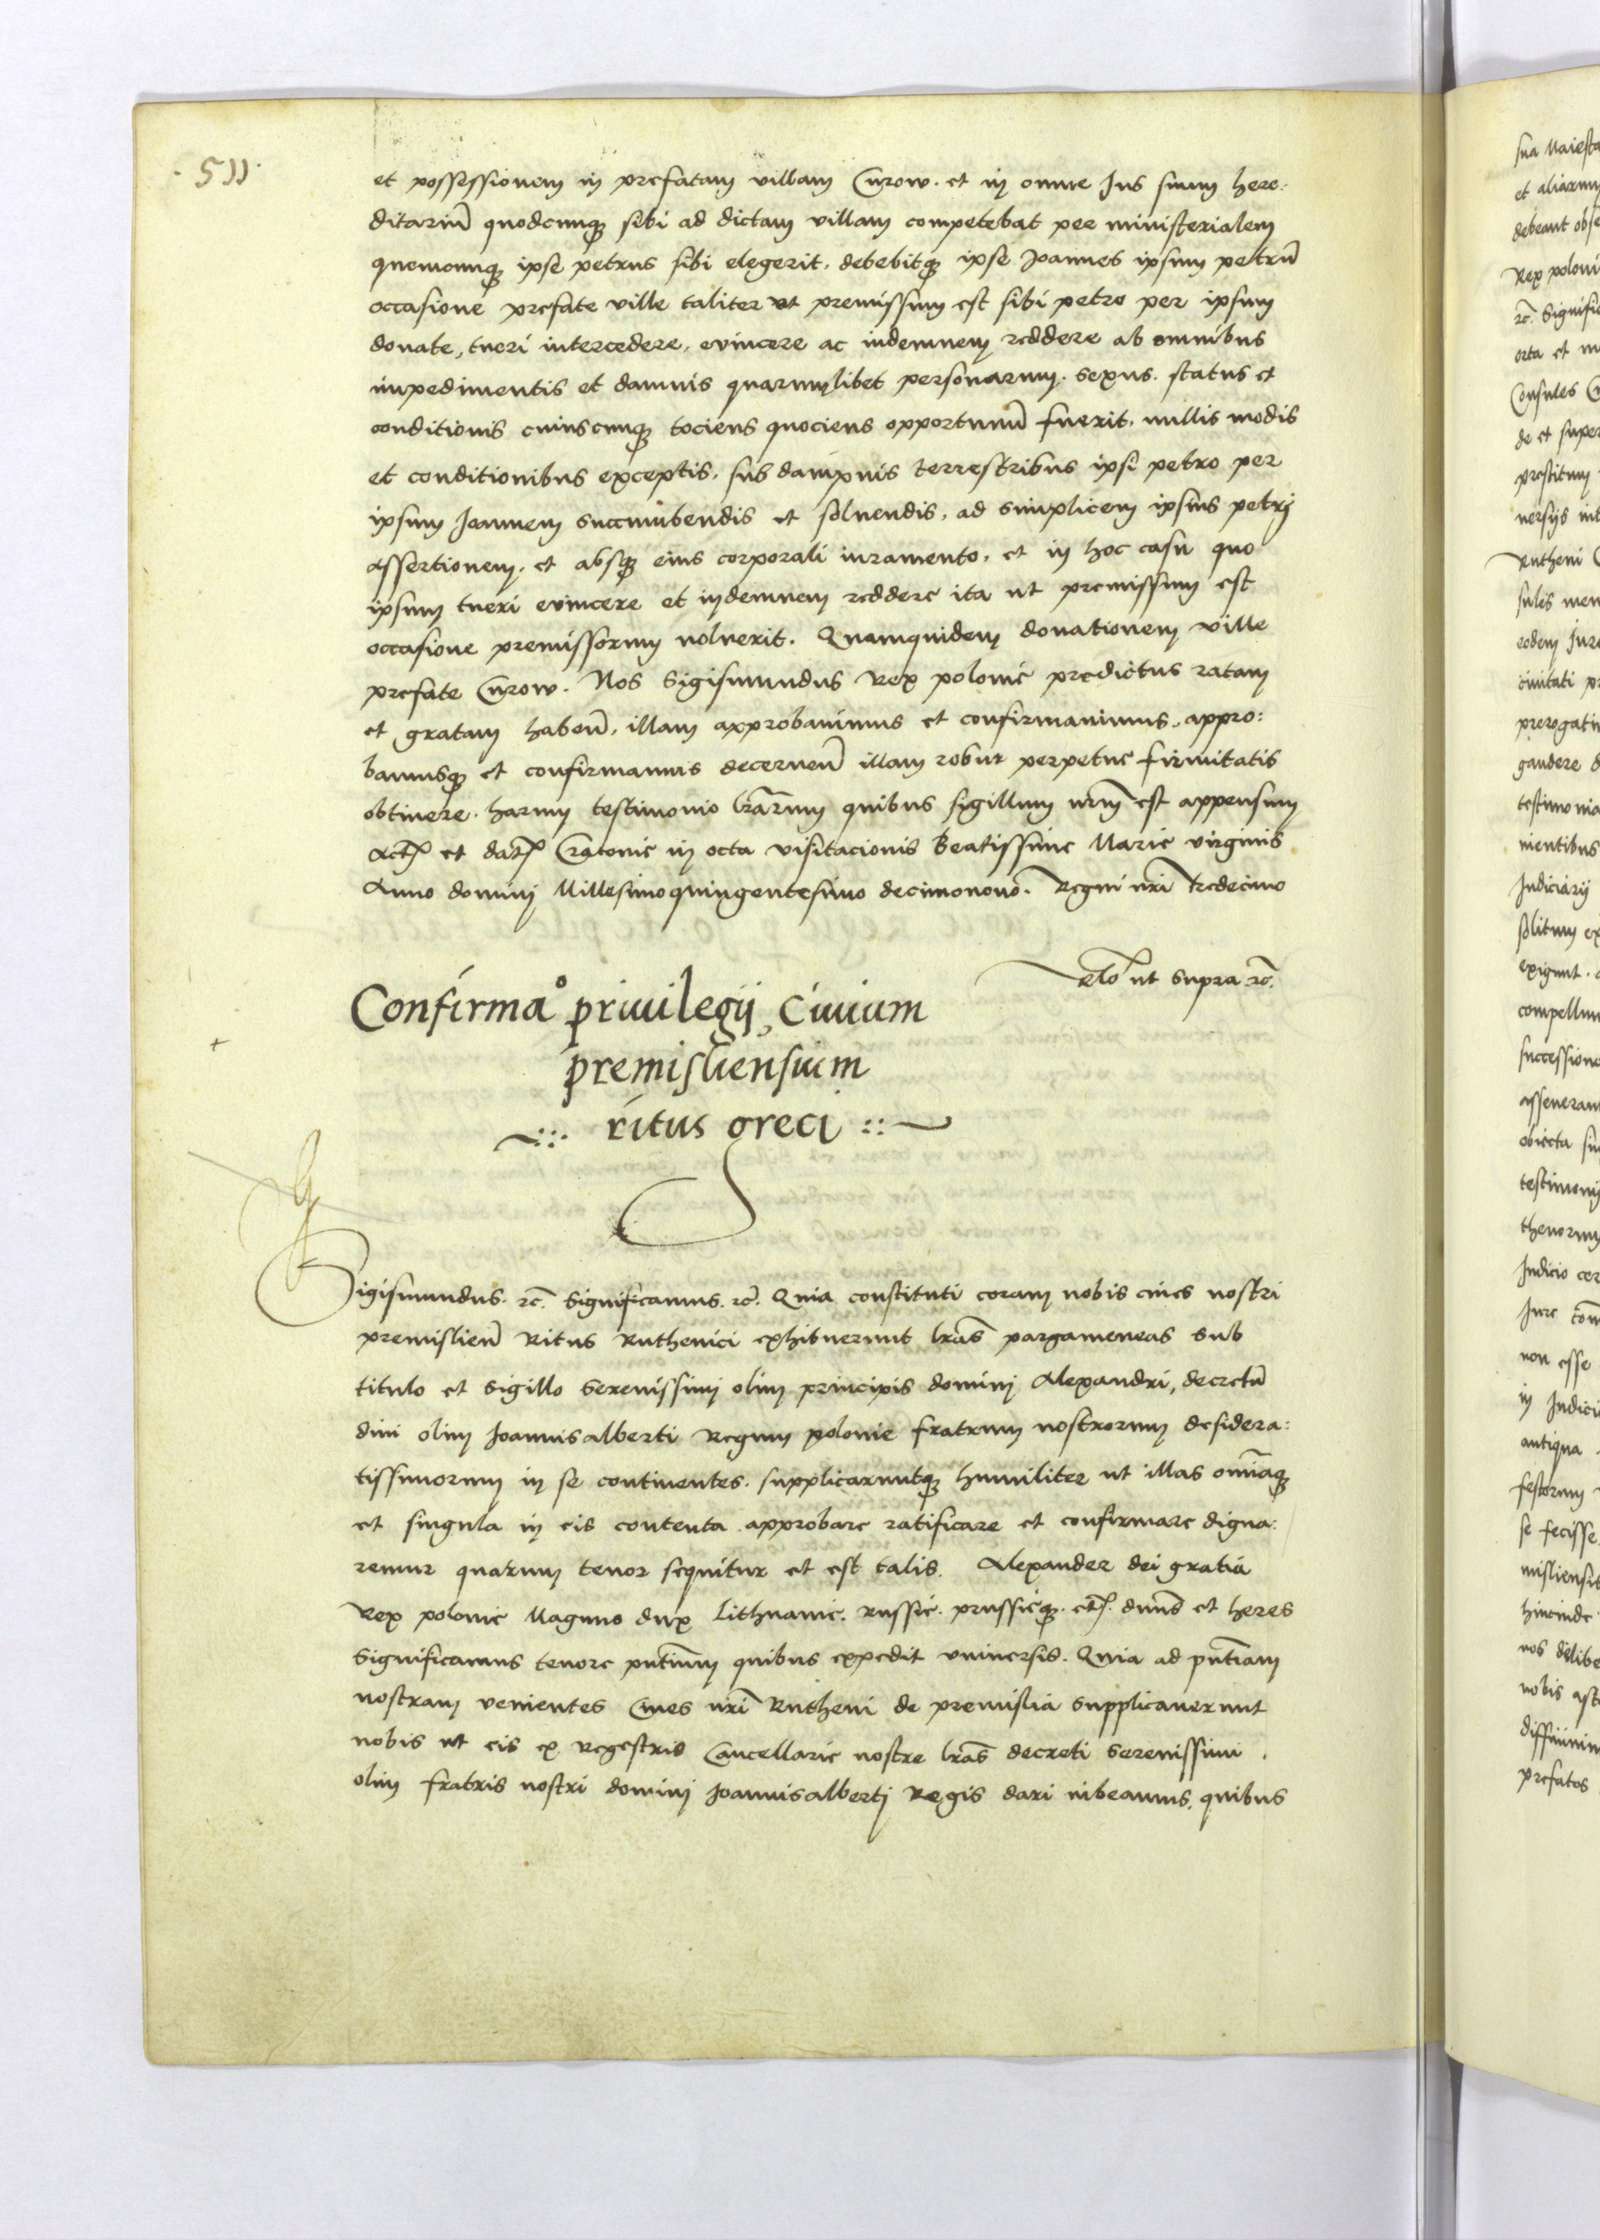 . 511 .
et possessionem in prefatam villam Curow. et in omne Jus suum here:
ditariū quodcunq̨ sibi ad dictam villam competebat per ministerialem
quemcunq̨ ipse petrus sibi elegerit. debebitq̨ ipse Joannes ipsum petrū
occasione prefate ville taliter ut premissum est sibi petro per ipsum
donate, tueri intercedere, evincere ac indemnem reddere ab omnibus
impedimentis et damnis quarumlibet personarum. sexus. status et
conditionis cuiuscunq̨ tociens quociens opportunū fuerit. nullis modis
et conditionibus exceptis. sub dampnis terrestribus ipsi petro per
ipsum Joannem succumbendis et solvendis. ad simplicem ipsius petrj
assertionem. et absq̨ eius corporali iuramento. et in hoc casu quo
ipsum tueri evincere et indemnem reddere ita ut premissum est
occasione premissorum noluerit. Quamquidem donationem ville
prefate Curow. Nos Sigismundus Rex polonie predictus ratam
et gratam habeñ. illam approbavimus et confirmavimus. appro:
bamusq̨ et confirmamus decerneñ illam robur perpetue firmitatis
obtinere. harum testimonio lr̄arum quibus sigillum nr̄m est appensum
Act̄ et dat̄ Cracovie in octa visitacionis Beatissime Marie virginis
Anno dominj Millesimoquingentesimo decimonono. Regni nr̄i tredecimo
Relō ut supra ɾc̄.
Confirmaᵒ privilegij Civium
premisliensium
ritus grecj
Sigismundus. ɾc̄. Significamus. ɾc̄. Quia constituti coram nobis cives nostri
premislieñ Ritus Ruthenici exhibuerunt lr̄as pargameneas sub
titulo et Sigillo Serenissimj olim principis dominj Alexandri, decretū
divi olim Joannisalberti Regum polonie fratrum nostrorum desidera:
tissimorum in se continentes. supplicaruntq̨ humiliter ut illas om̄iaq̨
et singula in eis contenta approbare ratificare et confirmare digna:
remur quarum tenor sequitur et est talis. Alexander dei gratia
Rex polonie Magnus dux Lithuanie. russie. prussieq̨. et̄. dn̄us et heres
Significamus tenore pn̄tium quibus expedit universis. Quia ad pn̄tiam
nostram venientes Cives nr̄i Rutheni de premislia supplicaverunt
nobis ut eis ex Regestris Cancellarie nostre lr̄as decreti Serenissimi
olim fratris nostri dominj Joannisalbertj Regis dari iubeamus, quibus